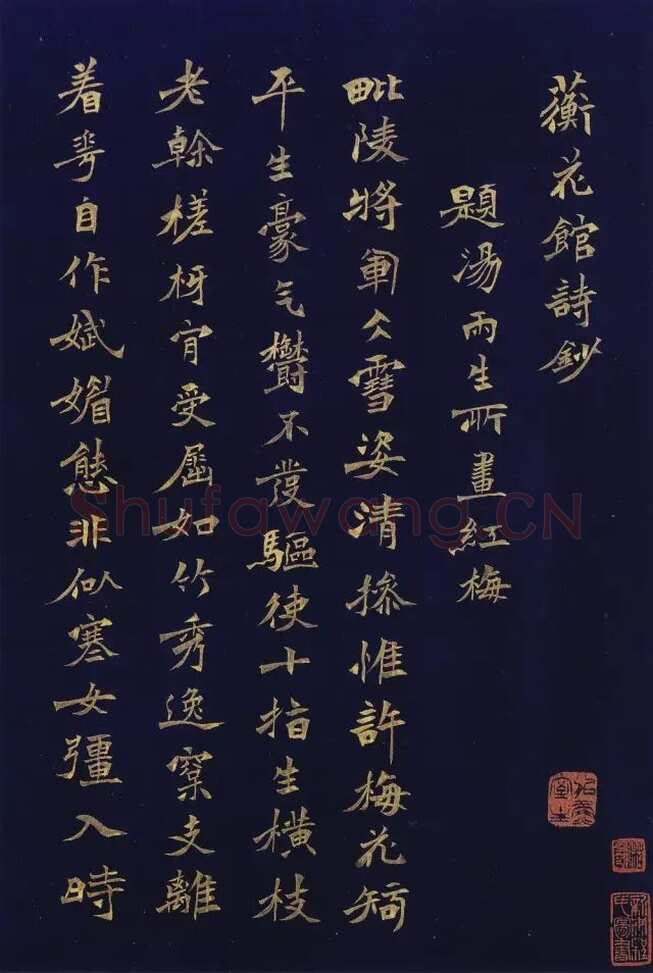 蘅花館詩鈔
題湯雨生所畫紅梅
毗陵將軍仌雪姿清摻惟許梅花知
平生豪气鬱不發驅使十指生橫枝
老榦槎枒肯受屈如竹秀逸窠支離
着花自作娬媚態非似寒女彊入時
Shufawang.CN